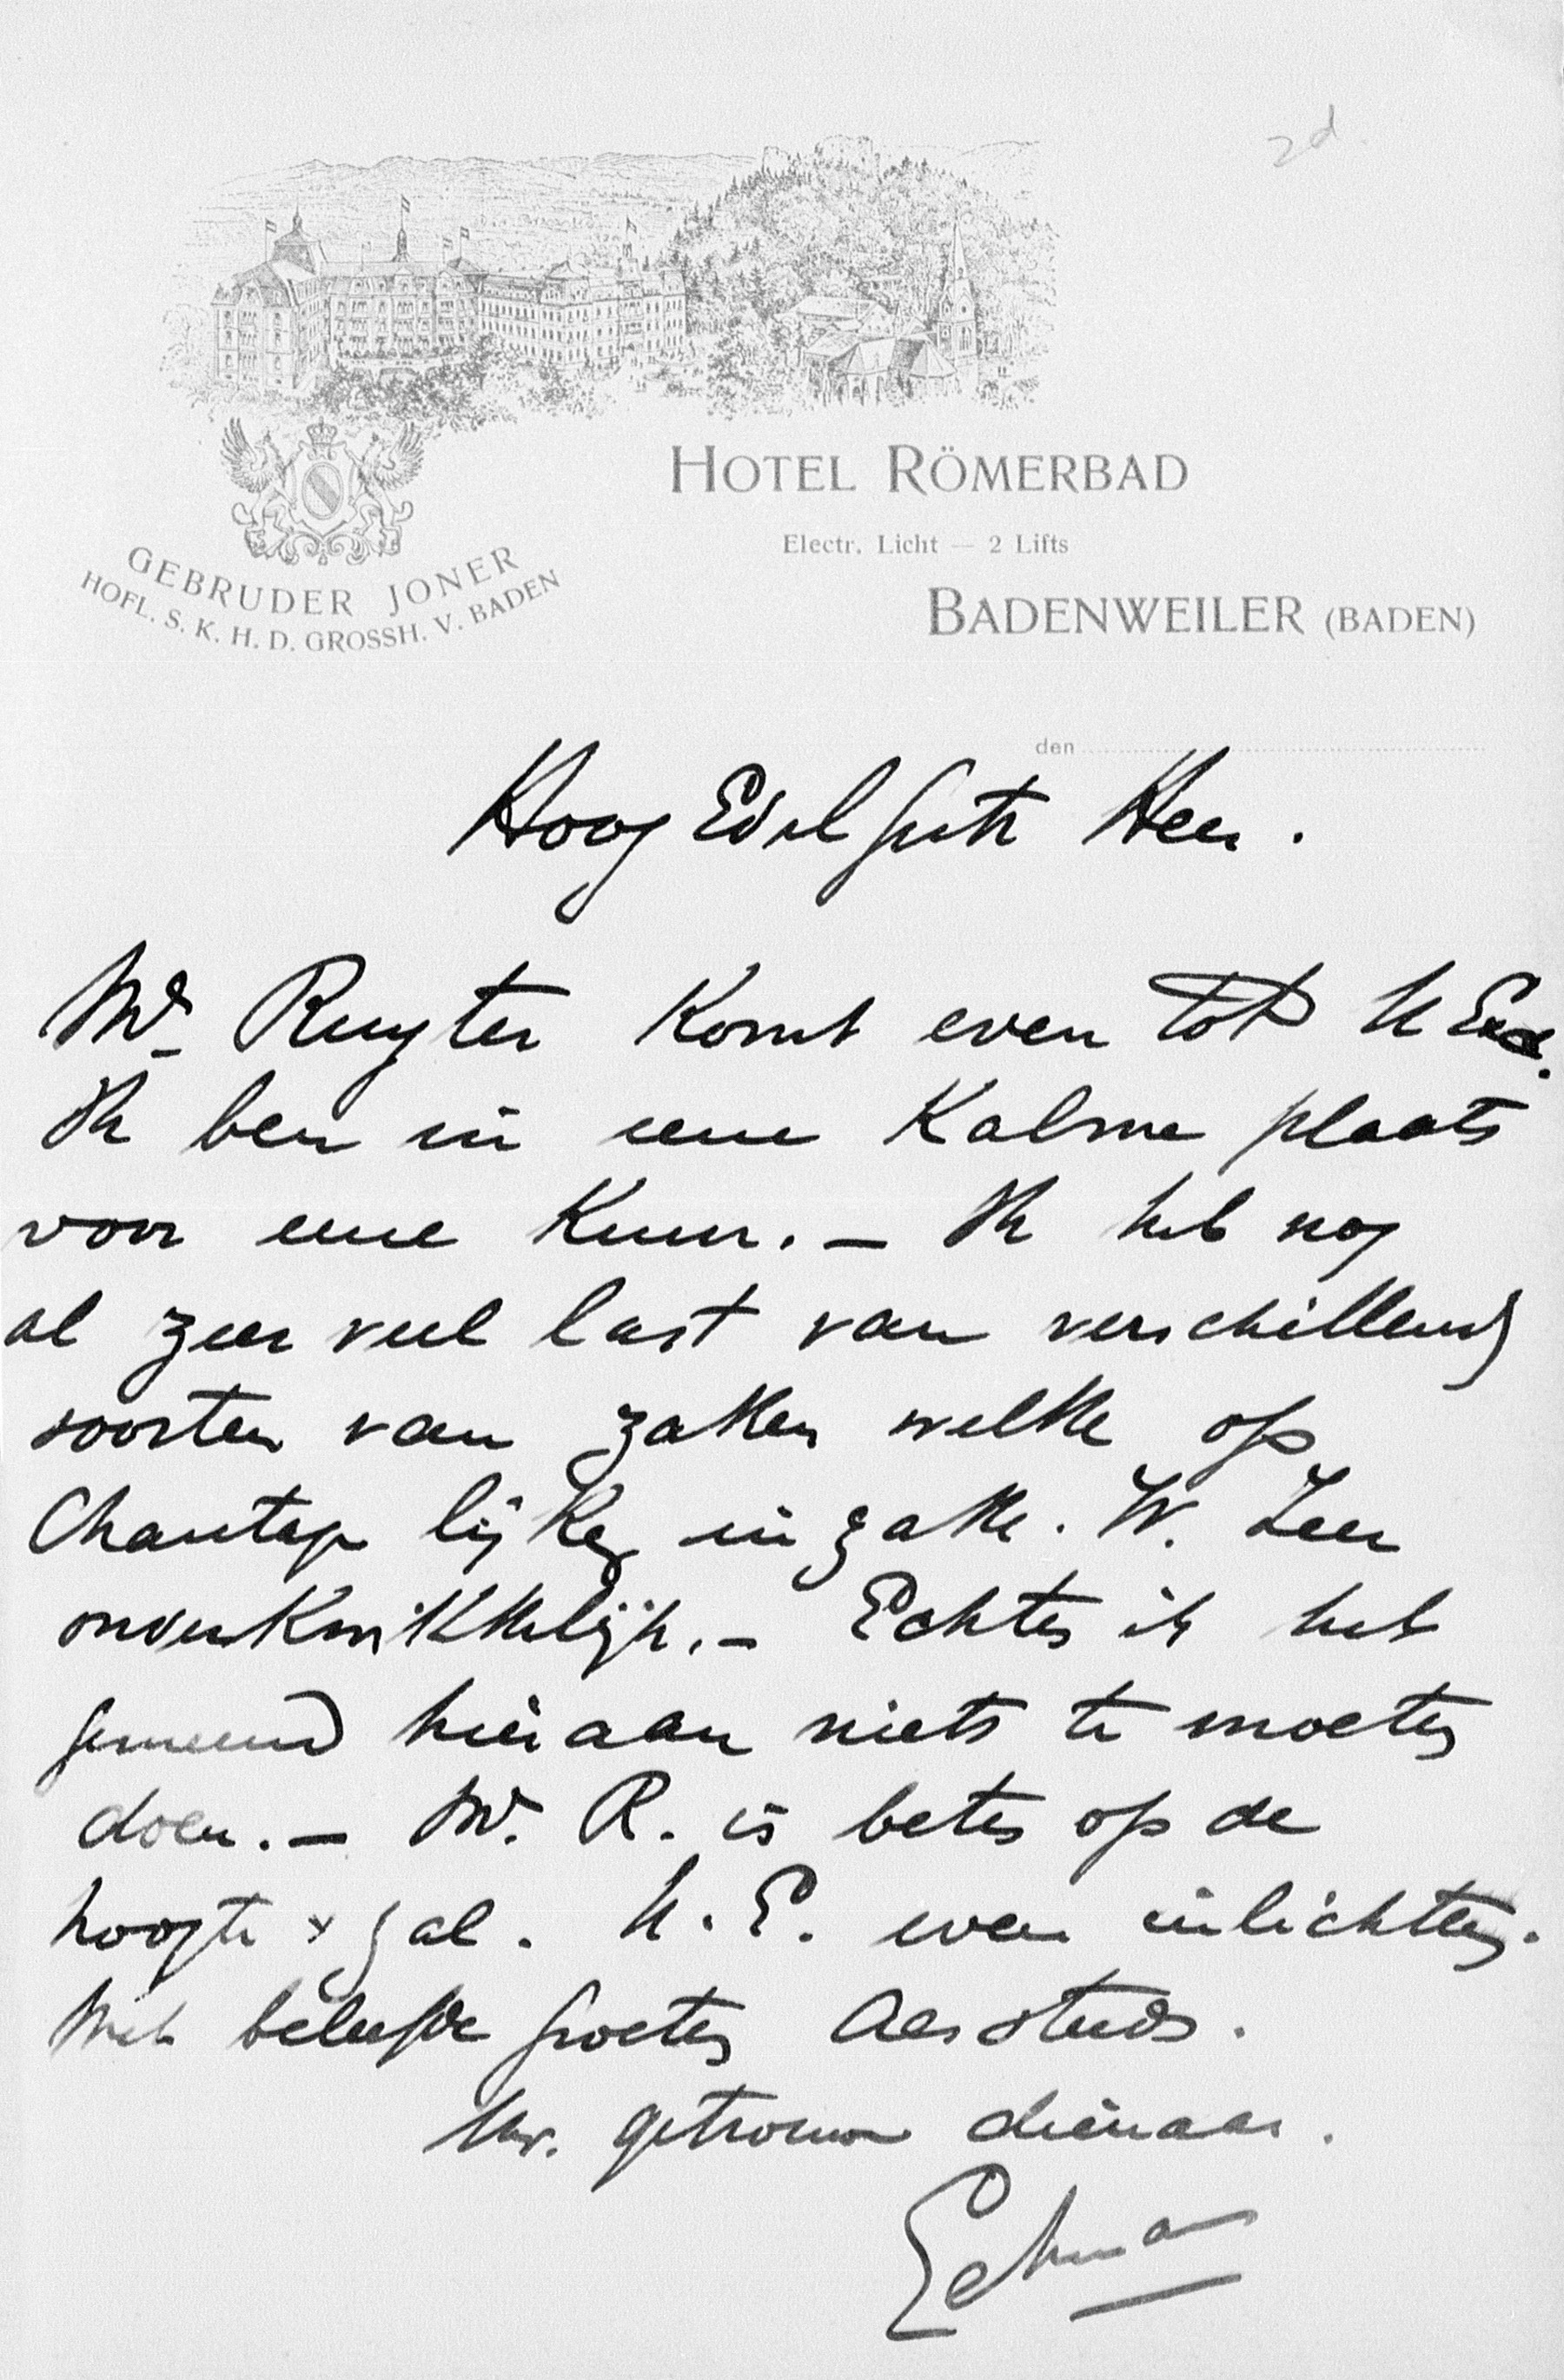 zd
HOTEL RÖMERBAD
Electr. Licht — 2 Lifts
BADENWEILER (BADEN)
GEBRUDER JONER
HOFL. S. K. H. D. GROSSH. V. BADEN
den
Hoog Edel Gestr Heer.
Mr Ruyter komt even tot U Ed.
Ik ben in eene Kalme plaats
voor eene Kuur. — Ik heb nog
al zeer veel last van verschillend
soorten van zakken welke op
Chantage lijken in zake. W. Zeer
onverkwikkelijk. — Echter ik heb
gemeend hieraan niets te moeten
doen. — Mr. R. is beter op de
hoogte & zal. U. E. even inlichten.
Met beleefde groeten Aes steeds.
Uw. getrouwe dienaar.